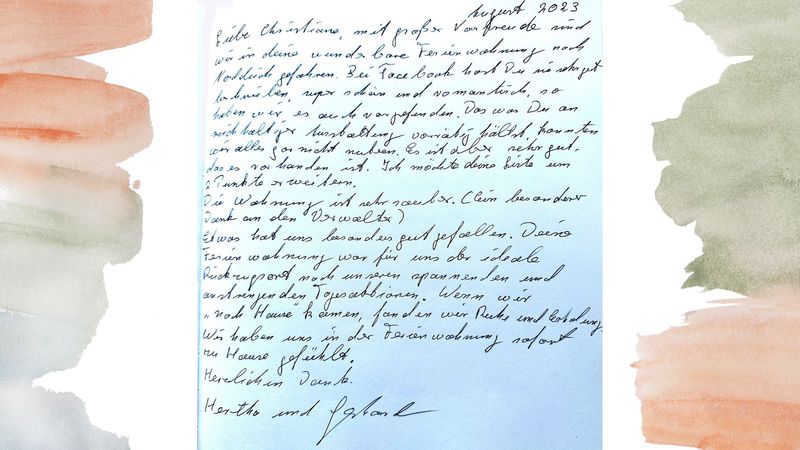 August 2023
Liebe Christiane, mit großer Vorfreude sind
wir in deine wunderbare Ferienwohnung nach
Norddeich gefahren. Bei Facebook hast Du sie sehr gut
beschrieben, super schön und romantisch, so
haben wir es auch vorgefunden. Das was Du an
reichhaltiger Ausstattung vorrätig hältst, konnten
wir alles gar nicht nutzen. Es ist aber sehr gut,
das es vorhanden ist. Ich möchte deine Liste um
2 Punkte erweitern.
Die Wohnung ist sehr sauber. (Ein besonderer
Dank an den Verwalter)
Etwas hat uns besonders gut gefallen. Deine
Ferienwohnung war für uns der ideale
Rückzugsort nach unseren spannenden und
anstrengenden Tagesaktionen. Wenn wir
"nach Hause kamen, fanden wir Ruhe und Erholung.
Wir haben uns in der Ferienwohnung sofort
zu Hause gefühlt.
Herzlichen Dank.
Hertha und